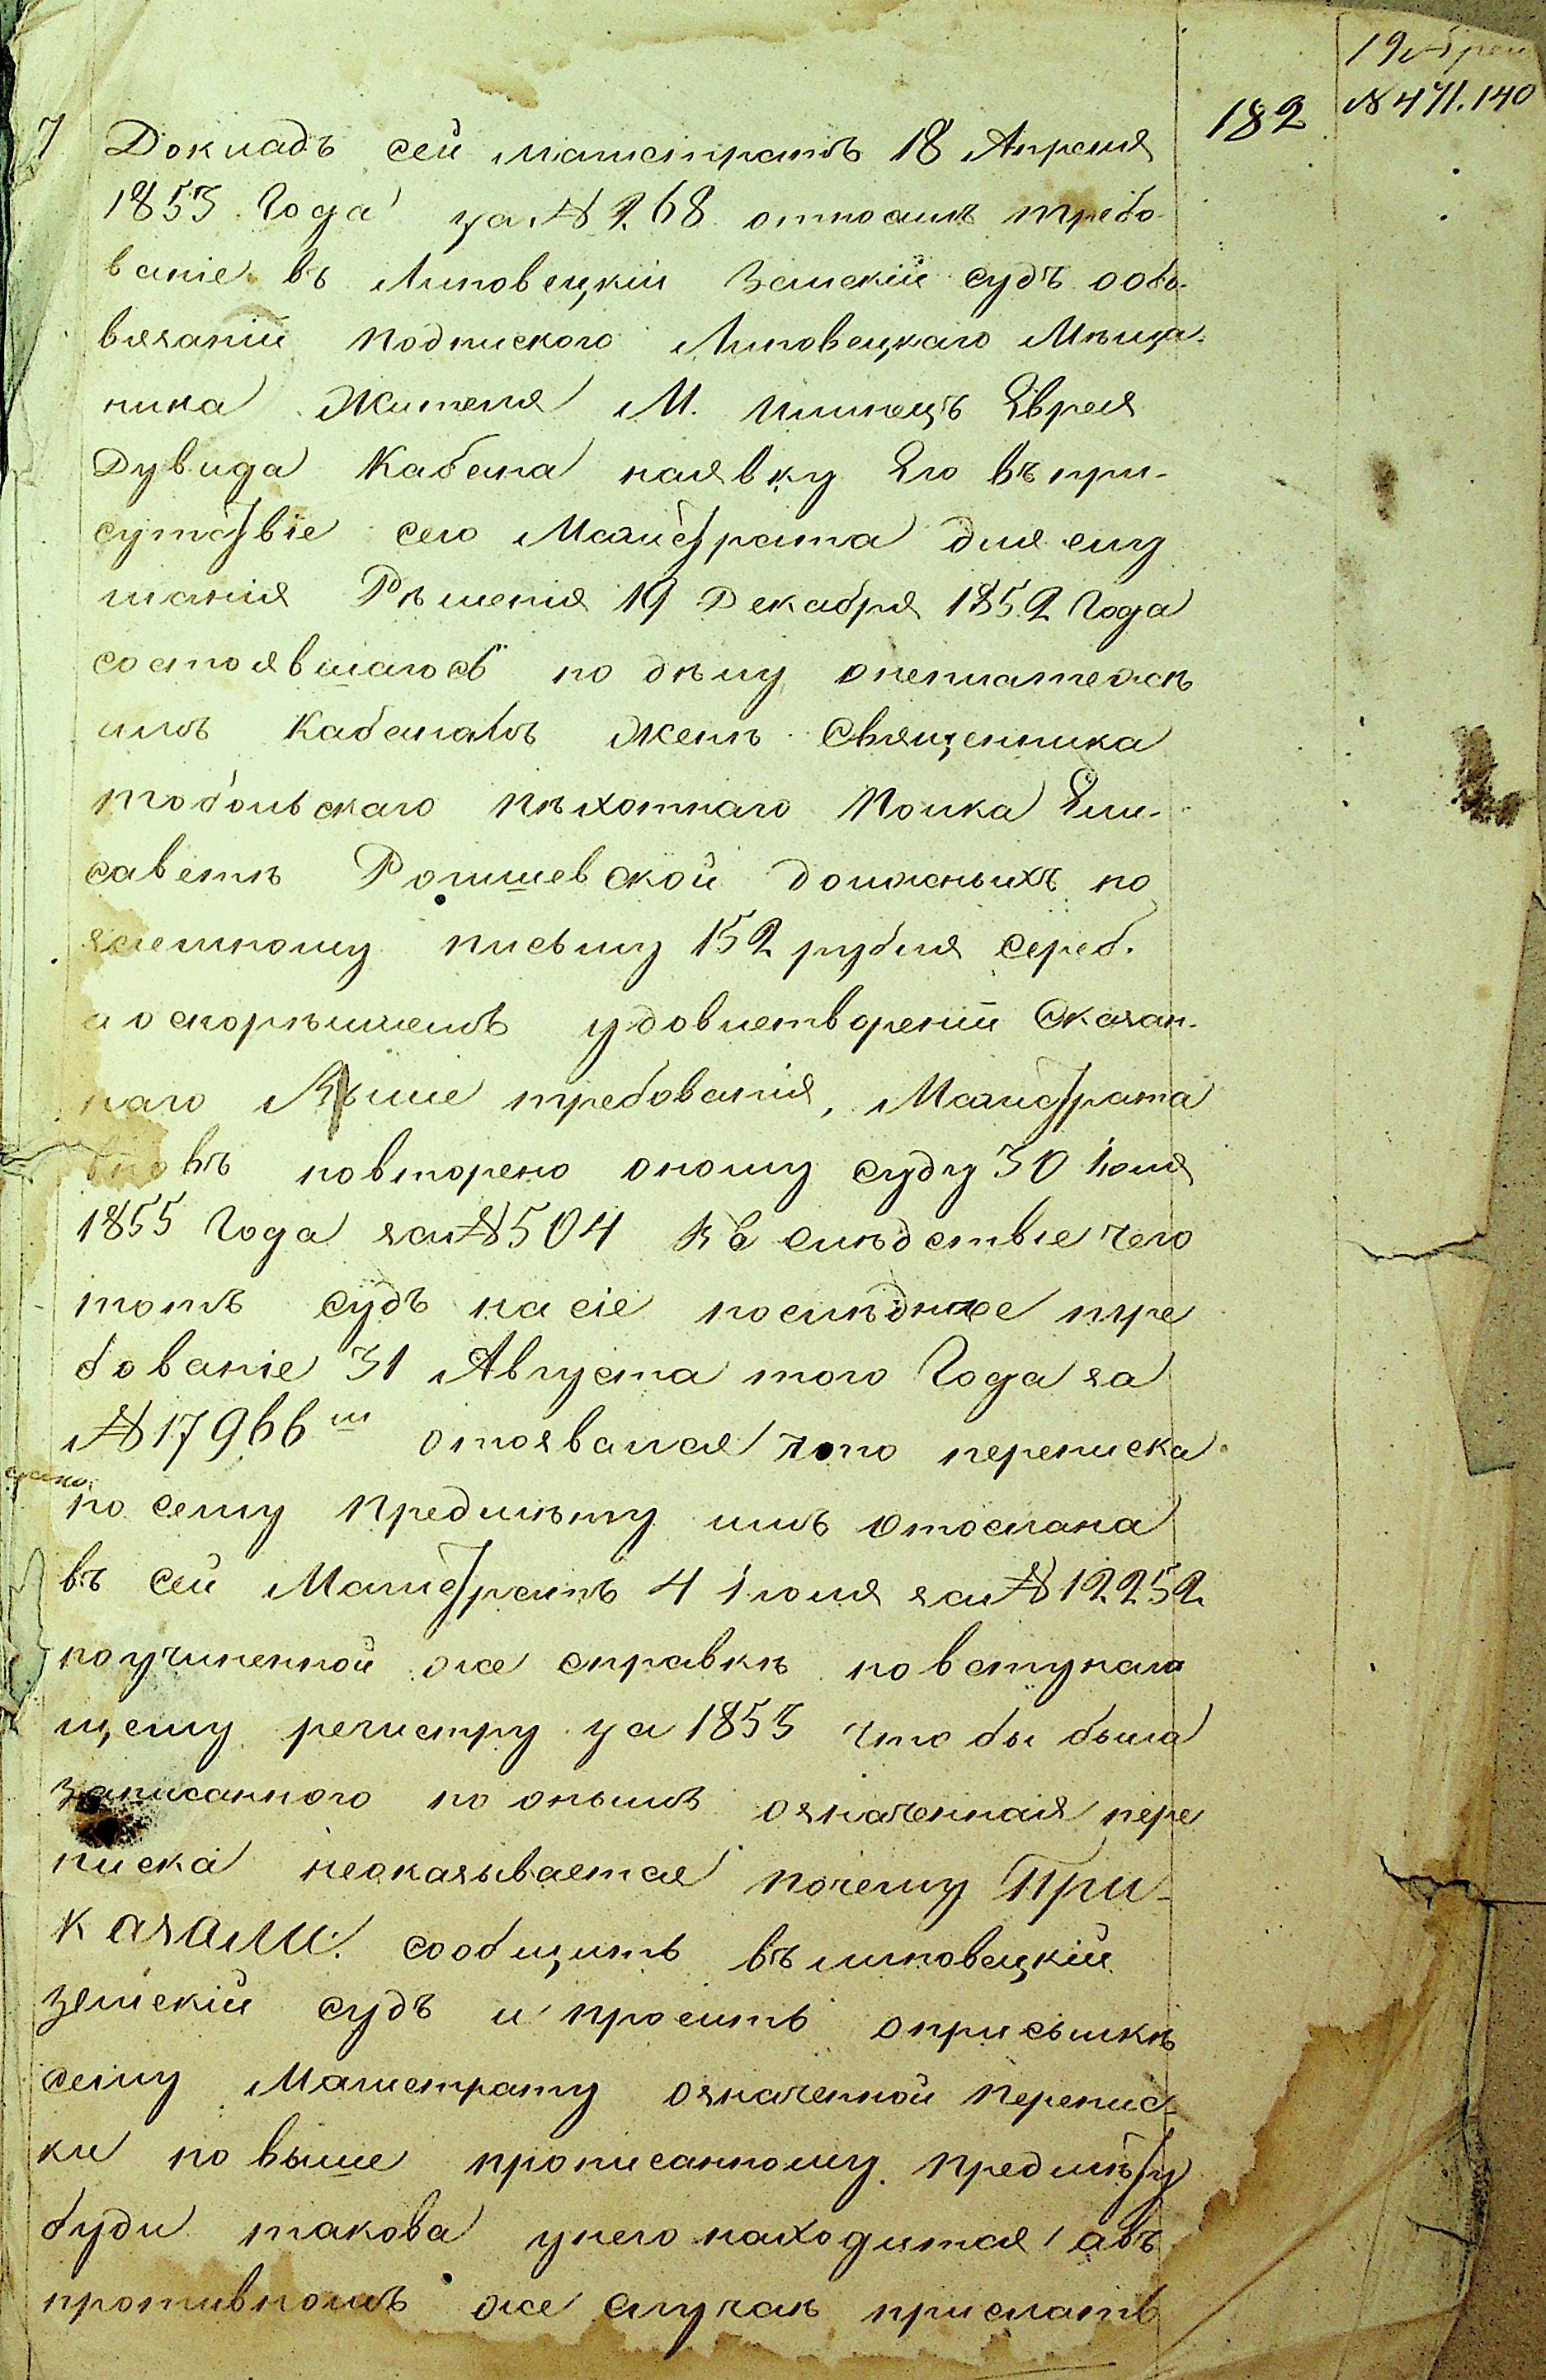 182
№ 471. 140
7 Докладъ сей магистратъ 18 Апреля
1855 Года за № 268 относилъ требо-
ваніе въ Липовецкій Земскій судъ ообъ-
вязаніи подпискою Липовецкаго Мѣща-
нина Жителя М. Илинецъ Еврея
Дувида Кабана наявку Его въ при-
сутствіе сего Магистрата для слу
шанія Рѣшенія 19 Декабря 1852 Года
состоявшагося по дѣлу онеплатежѣ
имъ Кабаномъ женѣ Священника
тобольскаго пѣхотнаго Полка Ели-
саветѣ Рогишевской должныхъ по
заемному письму 152 рубля сереб.
а о скорѣйшемъ удовлетвореніи Сказан-
наго Выше требованія, Магистрата
вновь повторено оному суду 30 Іюля
1855 Года за № 504 въ слѣдствіе чего
тотъ судъ на сіе послѣднее тре
бованіе 31 Августа того Года за
№ 17966 м отозвался что переписка
по сему предмѣту имъ отослана
въ сей Магистратъ 4 Іюля за № 12252
поучиненной же справкѣ по вступаю
щему регистру за 1855 что бы была
записанного по онымъ означенная пере
писка неоказывается почему При-
казали: сообщить въ липовецкій
земскій судъ и просить оприсылкѣ
сему Магистрату означенной перепис-
ки по выше прописанному предмѣту
буди такова унего находится, авъ
противномъ же случаѣ прислать